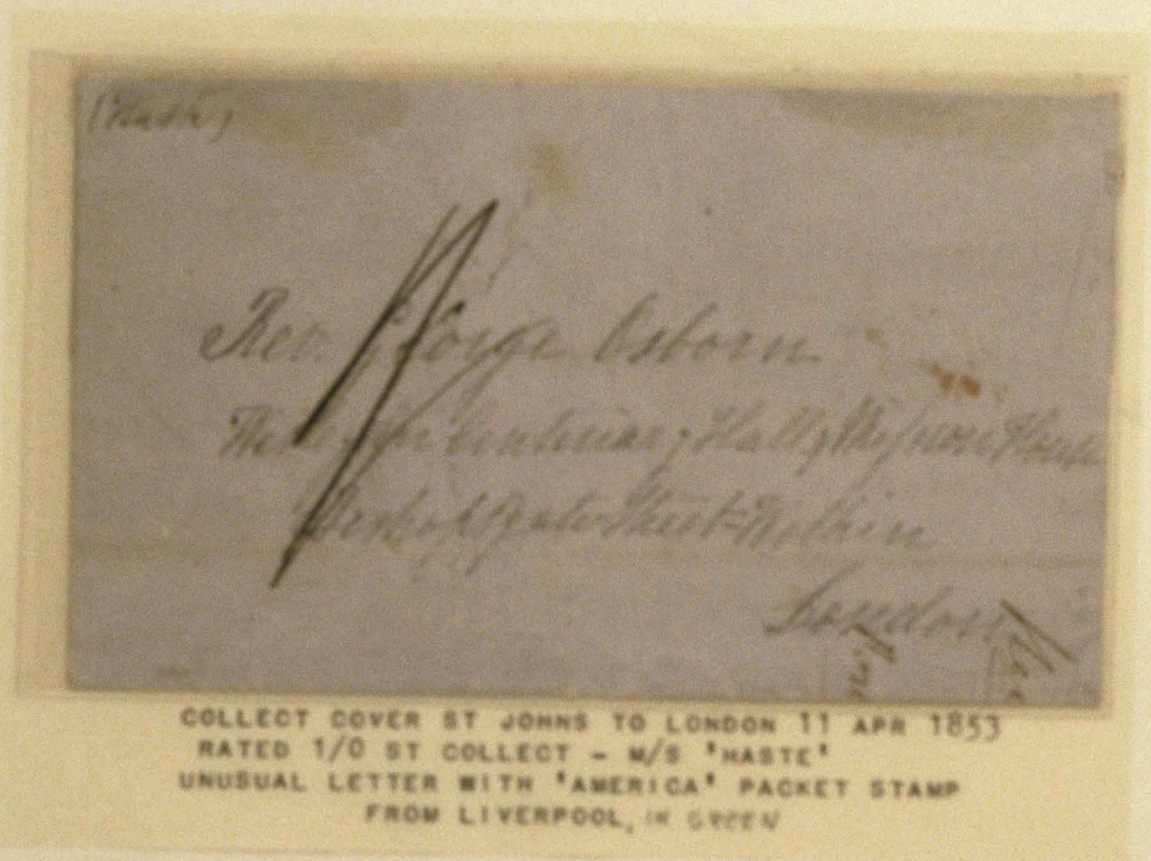 (Haste)
1/
Rev. George Osborn
Wesleyan Centenary Hall & Mission House
Bishopsgate Street Within
London
COLLECT COVER ST JOHNS TO LONDON 11 APR 1853
RATED 1/0 ST COLLECT - M/S 'HASTE'
UNUSUAL LETTER WITH 'AMERICA' PACKET STAMP
FROM LIVERPOOL, IN GREEN